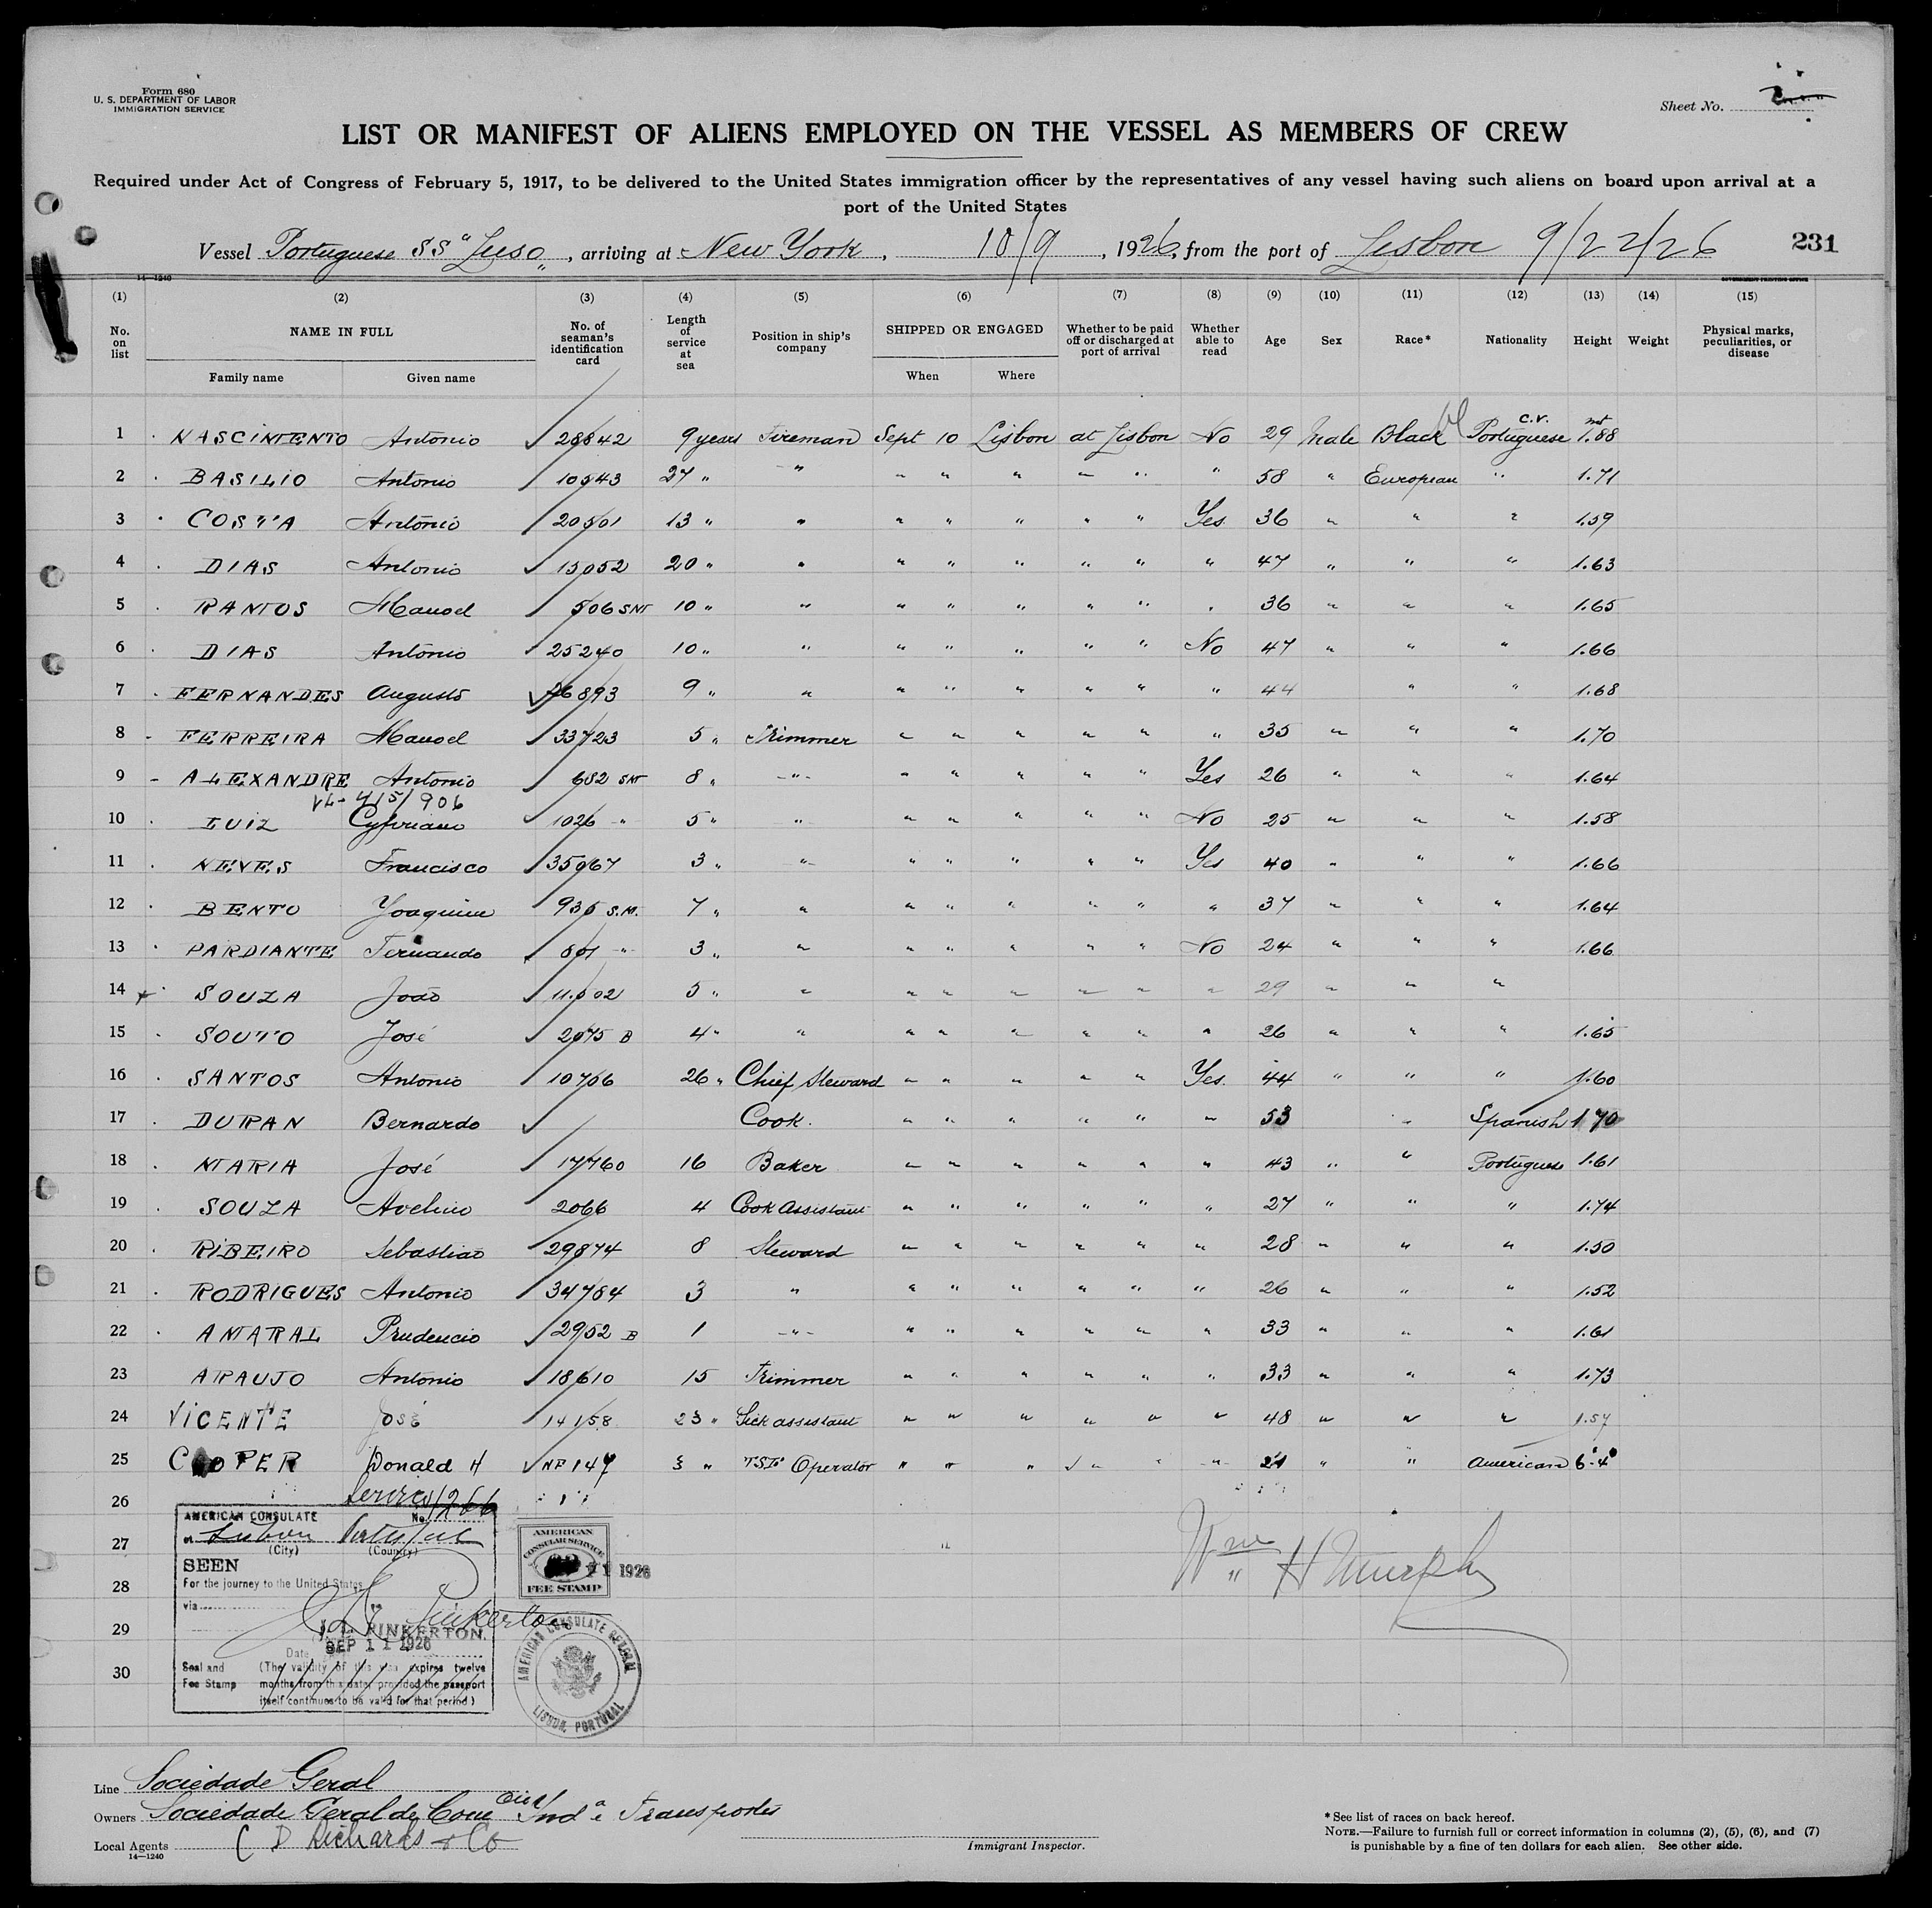 Form 680
U. S. DEPARTMENT OF LABOR
IMMIGRATION SERVICE
Sheet No.
LIST OR MANIFEST OF ALIENS EMPLOYED ON THE VESSEL AS MEMBERS OF CREW
Required under Act of Congress of February 5, 1917, to be delivered to the United States immigration officer by the representatives of any vessel having such aliens on board upon arrival at a
port of the United States
Vessel Portuguese SS "Luso", arriving at New York, 10/9, 1926, from the port of Lisbon 9/22/26 231
14—1240
(1) (2) (3) (4) (5) (6) (7) (8) (9) (10) (11) (12) (13) (14) (15)
No. on list NAME IN FULL Family name Given name No. of seaman's identification card Length of service at sea Position in ship's company SHIPPED OR ENGAGED When Where Whether to be paid off or discharged at port of arrival Whether able to read Age Sex Race* Nationality Height Weight Physical marks, peculiarities, or disease
1 NASCIMENTO Antonio 28842 9 years Fireman Sept 10 Lisbon at Lisbon No 29 Male Black Portuguese C.V. 1.68
2 BASILIO Antonio 10543 27 " " " " " " " " 58 " European " 1.71
3 COSTA António 20501 13 " " " " " " " Yes 36 " " " 1.59
4 DIAS Antonio 15052 20 " " " " " " " " 47 " " " 1.63
5 RAMOS Manoel 506 SM 10 " " " " " " " " 36 " " " 1.65
6 DIAS António 25240 10 " " " " " " " No 47 " " " 1.66
7 FERNANDES Augusto 26893 9 " " " " " " " " 44 " " 1.68
8 FERREIRA Manoel 33723 5 " Trimmer " " " " " " 35 " " " 1.70
9 ALEXANDRE Antonio 682 SM 8 " " " " " " " Yes 26 " " " 1.64
10 LUIZ Cypriano 1026 " 5 " " " " " " " No 25 " " " 1.58
11 NEVES Francisco 35067 3 " " " " " " " Yes 40 " " " 1.66
12 BENTO Joaquim 935 S.M. 7 " " " " " " " " 37 " " " 1.64
13 PARDIANTE Fernando 801 " 3 " " " " " " " No 24 " " " 1.66
14 SOUZA João 11.502 5 " " " " " " " " 29 " " "
15 SOUTO José 2075 B 4 " " " " " " " " 26 " " " 1.65
16 SANTOS Antonio 10706 26 " Chief Steward " " " " " Yes. 44 " " " 1.60
17 DURAN Bernardo Cook. " " " " " " 53 " Spanish 1.70
18 MARIA José 17760 16 Baker " " " " " " 43 " " Portuguese 1.61
19 SOUZA Avelino 2066 4 Cook Assistant " " " " " " 27 " " " 1.74
20 RIBEIRO Sebastiao 29874 8 Steward " " " " " " 28 " " " 1.50
21 RODRIGUES Antonio 34784 3 " " " " " " " 26 " " " 1.52
22 AMARAL Prudencio 2952 B 1 " " " " " " " 33 " " " 1.61
23 ARAUJO Antonio 18610 15 Trimmer " " " " " " 33 " " " 1.73
24 VICENTE José 14158 23 " Sick assistant " " " " " " 48 " " " 1.57
25 COOPER Donald H NP 147 3 " Operator " " " " " 21 " " American 6-4
26
27
28
29
30
AMERICAN CONSULATE No. 1266
at Lisbon Portugal
(City) (Country)
SEEN
For the journey to the United States
via
Pinkerton
PINKERTON.
Date SEP 11 1926
Seal and Fee Stamp
(The validity of this visa expires twelve
months from this date, provided the passport
itself continues to be valid for that period)
AMERICAN
CONSULAR SERVICE
FEE STAMP
1926
AMERICAN CONSULATE GENERAL
LISBON, PORTUGAL
Wm H Murphy
Line Sociedade Geral
Owners Sociedade Geral de Com Ind e Transportes
Local Agents C D Richards & Co
14—1240
Immigrant Inspector.
* See list of races on back hereof.
NOTE.—Failure to furnish full or correct information in columns (2), (5), (6), and (7)
is punishable by a fine of ten dollars for each alien. See other side.